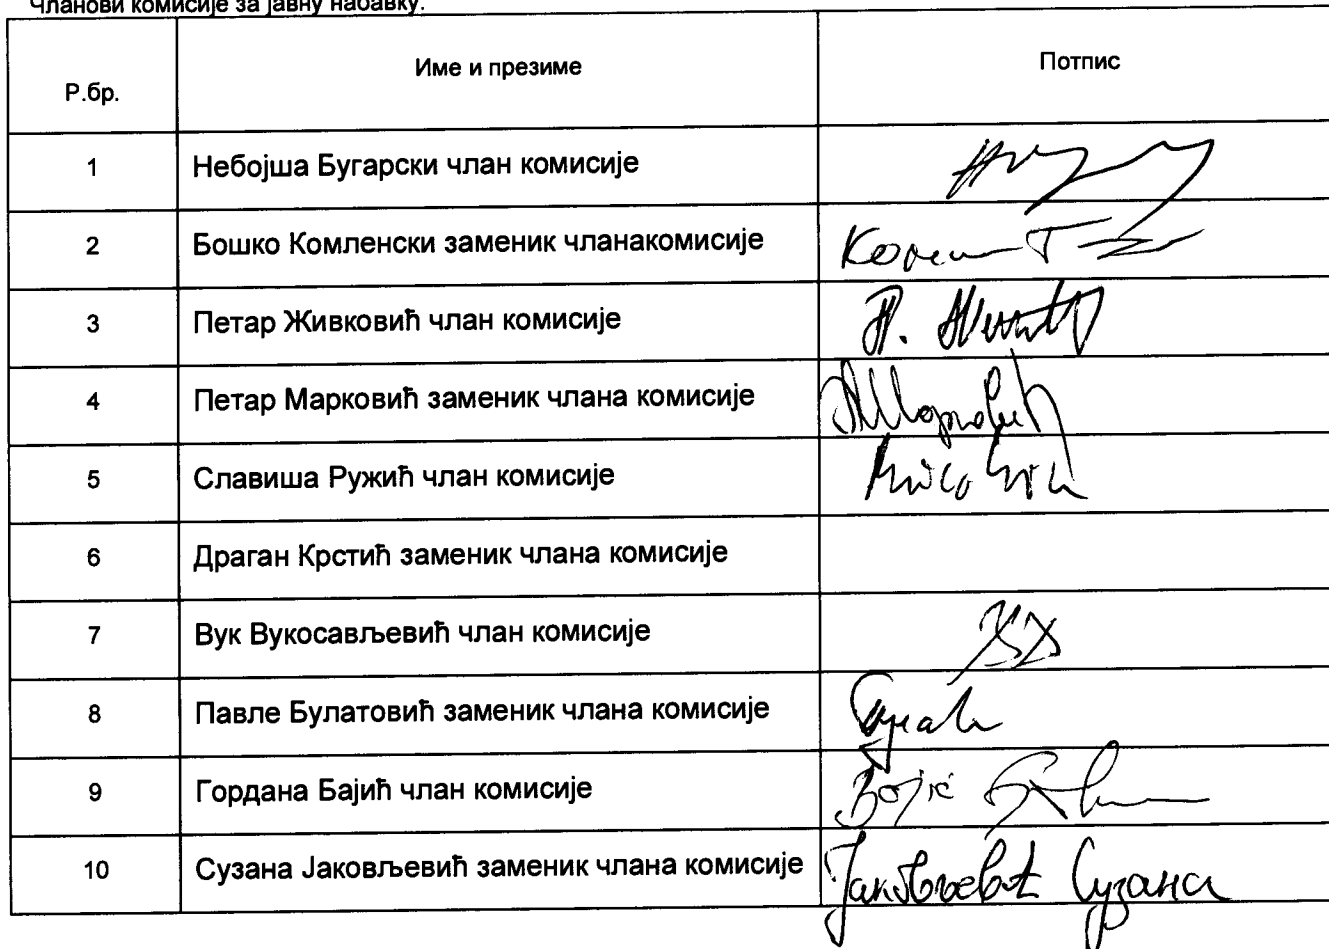 Чланови комисије за јавну набавку:
Р.бр. Име и презиме Потпис
1 Небојша Бугарски члан комисије
2 Бошко Комленски заменик чланакомисије
3 Петар Живковић члан комисије
4 Петар Марковић заменик члана комисије
5 Славиша Ружић члан комисије
6 Драган Крстић заменик члана комисије
7 Вук Вукосављевић члан комисије
8 Павле Булатовић заменик члана комисије
9 Гордана Бајић члан комисије
10 Сузана Јаковљевић заменик члана комисије Јаковљевић Сузана